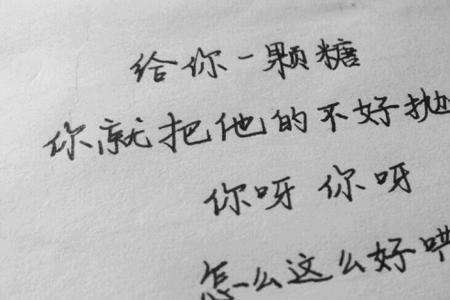 给你一颗糖
你就把他的不好抛
你呀你呀
怎么这么好哄